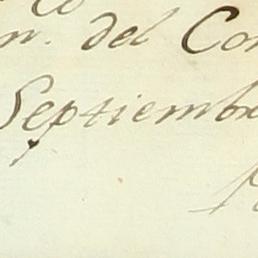 n. del Con
Septiembre